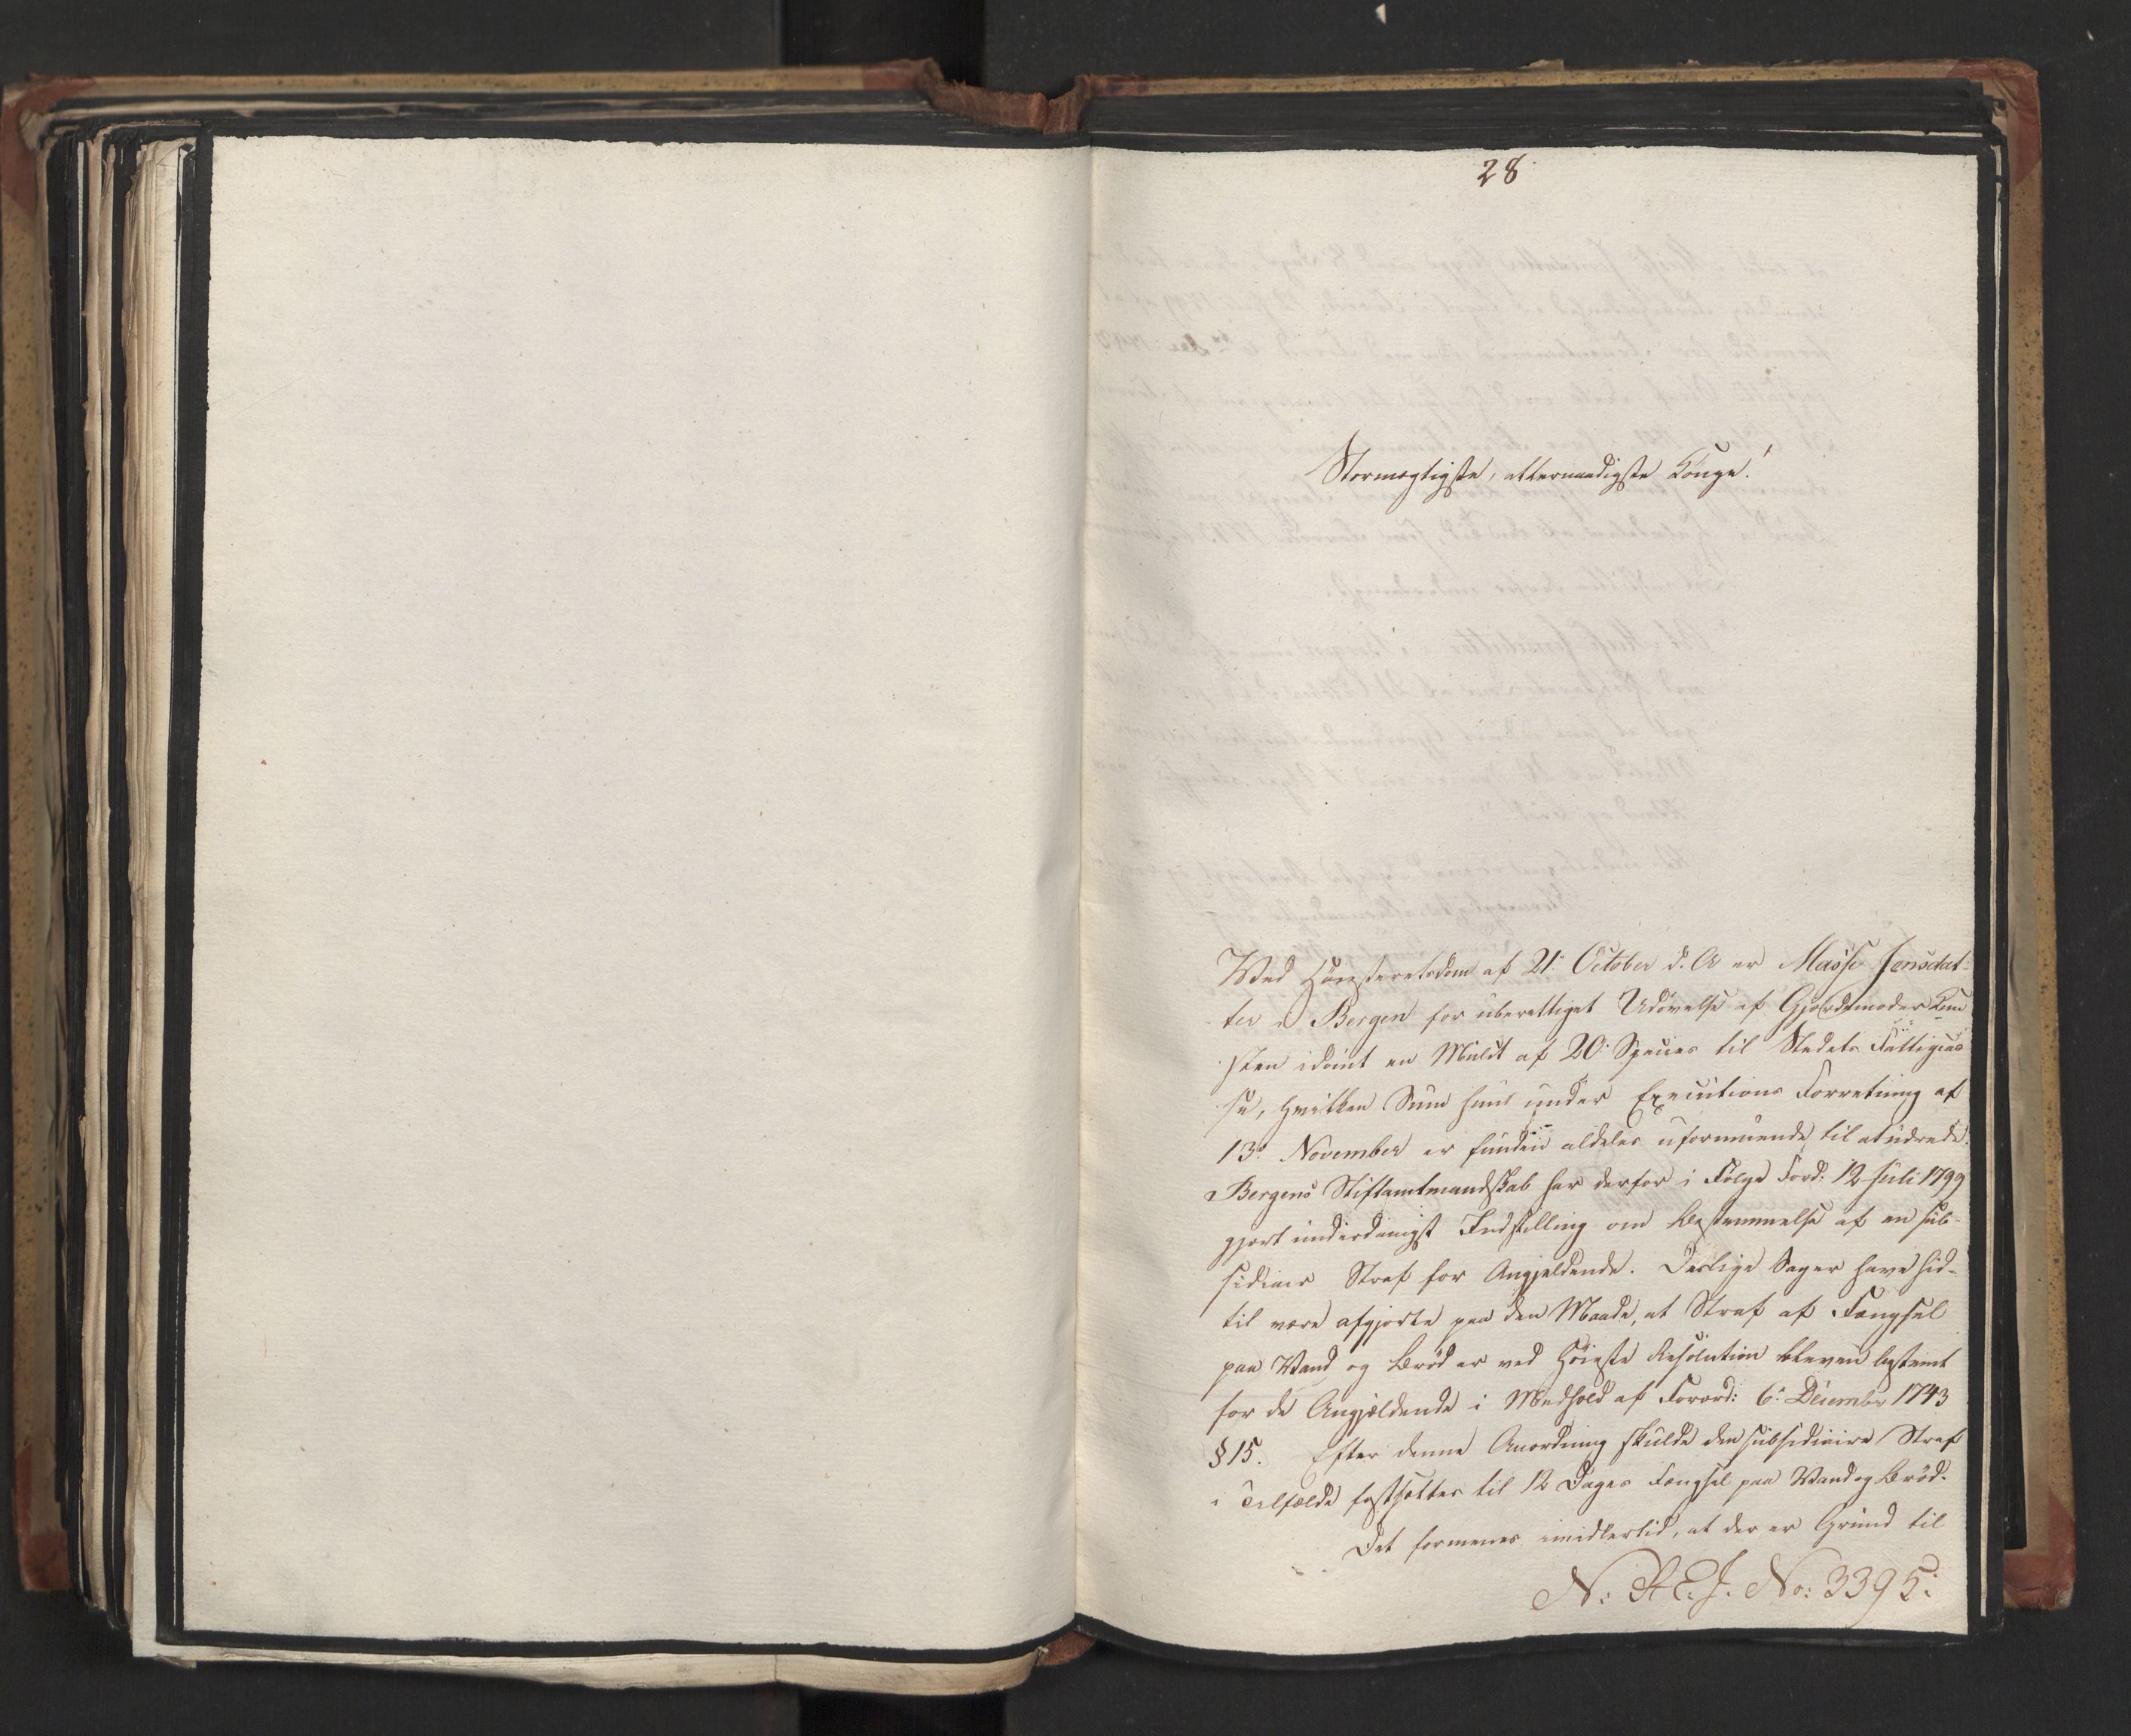 28
Stormægtigste, allernaadigste Konge!
Ved Høiesteretsdom af 21. October d. A er Massi Jensdat-
ter i Bergen for uberettiget Udövelse af Gjordemoder Kun
sten idömt en Mulct af 20 Species til Stedets Fattigcas
se, hvilken Sum hun under Executions Forretning af
13de November er funden aldeles uformuende til at udrede.
Bergens Stiftamtmandskab har derfor i Fölge Ford: 12 Juli 1799
gjort underdanigst Indstilling om Bestemmelse af en sub-
sidiair Straf for Angjeldende. Deslige Sager have hid-
til være afgjorte paa den Maade, at Straf af Fængsel
paa Vand og Bröd er ved Höieste Resolution bleven bestemt
for de Angjældende i Medhold af Forord: 6. December 1743
§ 15. Efter denne Anordning skulde den subsidiaire Straf
i Tilfælde fastsættes til 12 Dages Fængsel paa Vand og Bröd.
Det formenes imidlertid, at der er Grund til
N: R E. J. No: 3395: